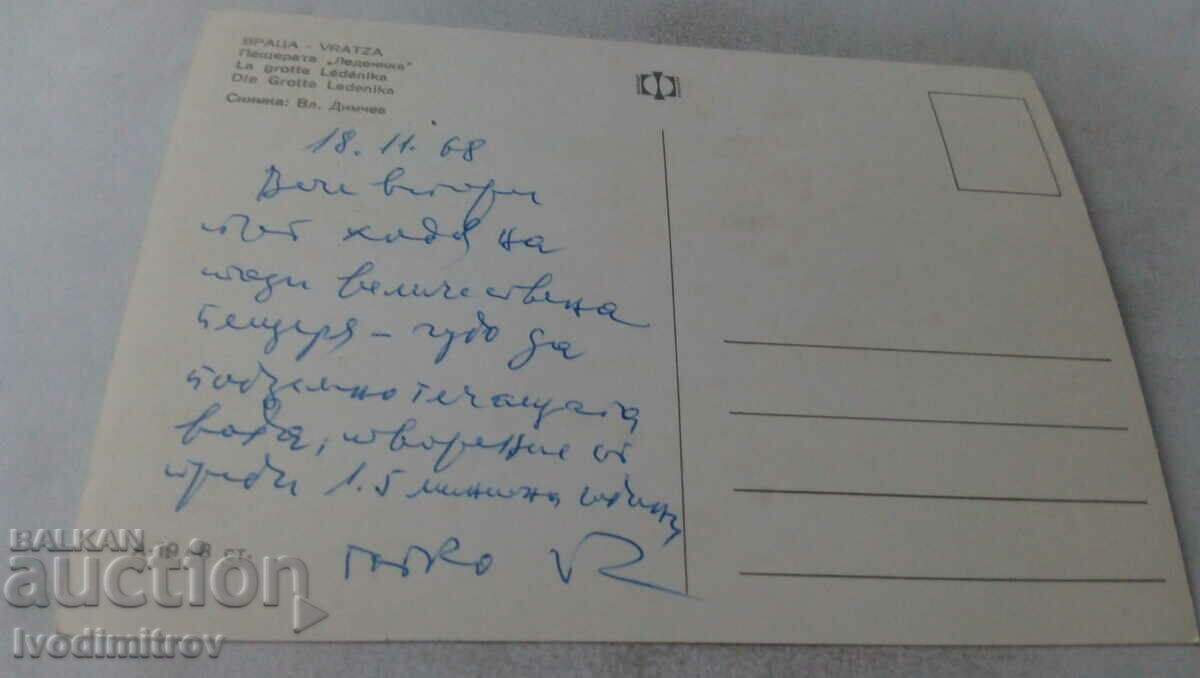 ВРАЦА - VRATZA
Пещерата „Леденика"
La grotte Lédénika
Die Grotte Ledenika
Снимка: Вл. Димчев
18. 11. 68
Вече втори
път ходя на
тази величествена
пещеря - чудо да
подземнотечащата
вода, творение от
преди 1.5 милиона години
8 ст.
BALKAN
auction
Ivodimitrov